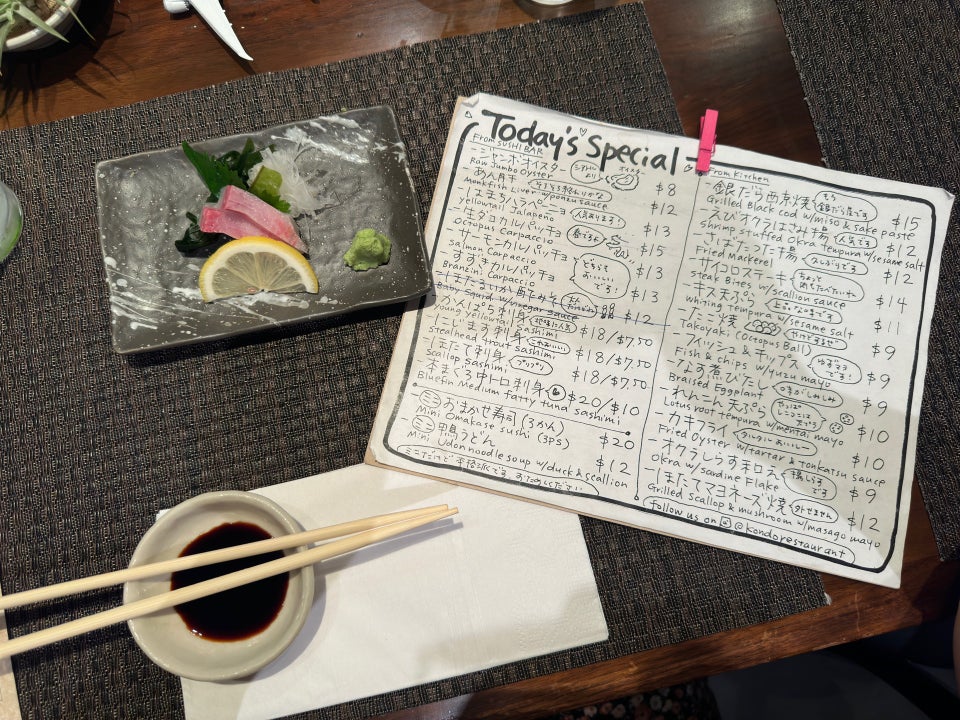 Today's Special
From SUSHI BAR
-ジャンボオイスター
Raw Jumbo oyster $8
-あん肝
Monkfish Liver w/ponzu sauce $12
-はまちハラペーニョ 人気あります!
yellowtail Jalapeño $13
-生ダコカルパッチョ
Octopus Carpaccio $15
-サーモンカルパッチョ
Salmon Carpaccio $13
-すずきカルパッチョ
Branzini Carpaccio $13
Baby Squid w/vinegar sauce $12
刺身
young yellowtail sashimi $18/$7.50
-にじます刺身
steelhead trout sashimi $18/$7.50
-ほたて刺身 プリプリ
Scallop Sashimi $18/$7.50
-本まぐろ中トロ刺身
Bluefin Medium fatty tuna sashimi $20/$10
-ミニおまかせ寿司(3かん)
Mini Omakase sushi (3ps) $20
-ミニ鴨うどん
Mini Udon noodle soup w/duck & scallion $12
From Kitchen
-銀だら西京焼
Grilled Black cod w/miso & sake paste $15
-えびオクラはさみ揚 人気です
Shrimp stuffed Okra tempura w/sesame salt $12
-さばたつた揚 久しぶりです
Fried Mackerel $12
-サイコロステーキ
steak Bites w/scallion sauce $14
-キス天ぷら
whiting tempura w/sesame salt $11
-たこ焼
Takoyaki (octopus Ball) $9
-フィッシュ&チップス ゆずマヨです!
Fish & chips w/yuzu mayo $9
-なす煮びたし
Braised Eggplant $9
-れんこん天ぷら
Lotus root tempura w/mentai mayo $10
-カキフライ
Fried Oyster w/tartar & tonkatsu sauce $10
-オクラしらす和え
Okra w/sardine Flake $9
-ほたてマヨネーズ焼 外せません
Grilled Scallop & mushroom w/masago mayo $12
follow us on @kondorestaurant